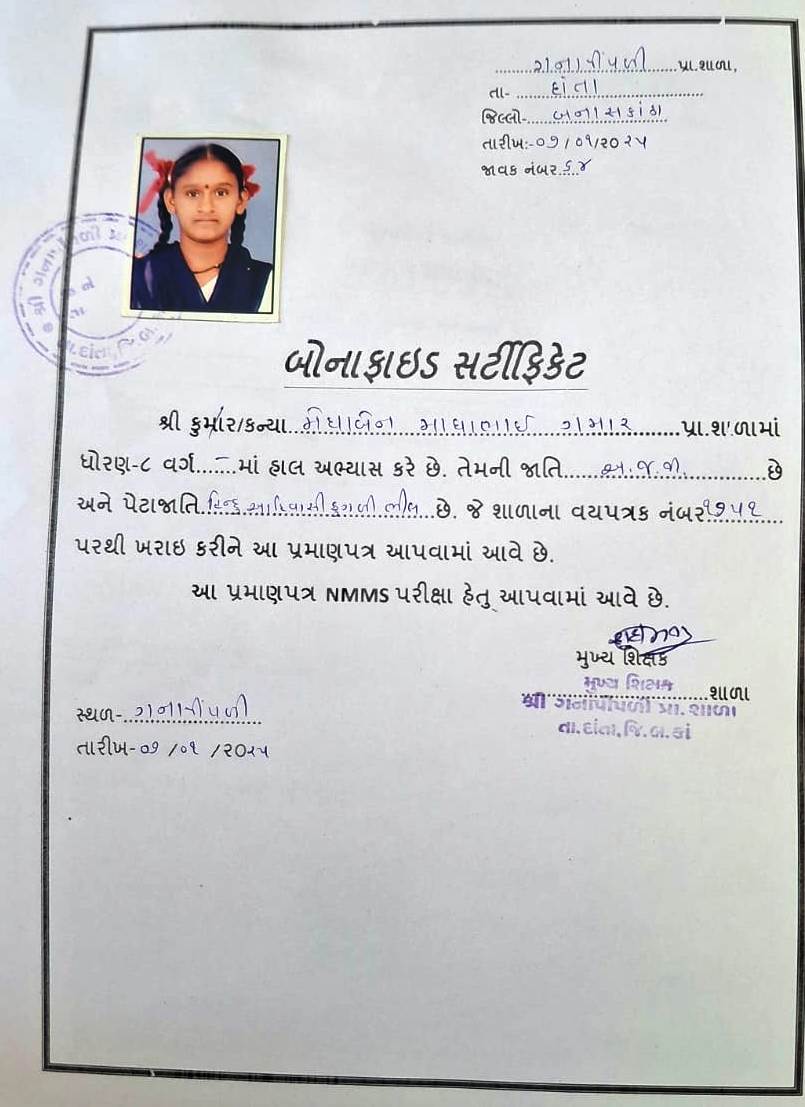 ગનાપીંપળી પ્રા.શાળા,
તા- દાંતા
જિલ્લો- બનાસકાંઠા
તારીખ:-૦૭/૦૧/૨૦૨૫
જાવક નંબર ૬૪
શ્રી ગનાપીંપળી પ્રા
તા.દાંતા,જિ.બ.
બોનાફાઇડ સર્ટીફિકેટ
શ્રી કુમાર/કન્યા મેઘાબેન માધાભાઈ ગમાર પ્રા.શાળામાં
ધોરણ-૮ વર્ગ - માં હાલ અભ્યાસ કરે છે. તેમની જાતિ અ.જ.જા. છે
અને પેટાજાતિ હિન્દુ આદિવાસી ડુંગળી ભીલ છે. જે શાળાના વયપત્રક નંબર ૧૭૫૧
પરથી ખરાઇ કરીને આ પ્રમાણપત્ર આપવામાં આવે છે.
આ પ્રમાણપત્ર NMMS પરીક્ષા હેતુ આપવામાં આવે છે.
મુખ્ય શિક્ષક
મુખ્ય શિક્ષક શાળા
શ્રી ગનાપીપળી પ્રા.શાળા
તા.દાંતા,જિ.બ.કાં
સ્થળ- ગનાપીંપળી
તારીખ-૦૭/૦૧/૨૦૨૫